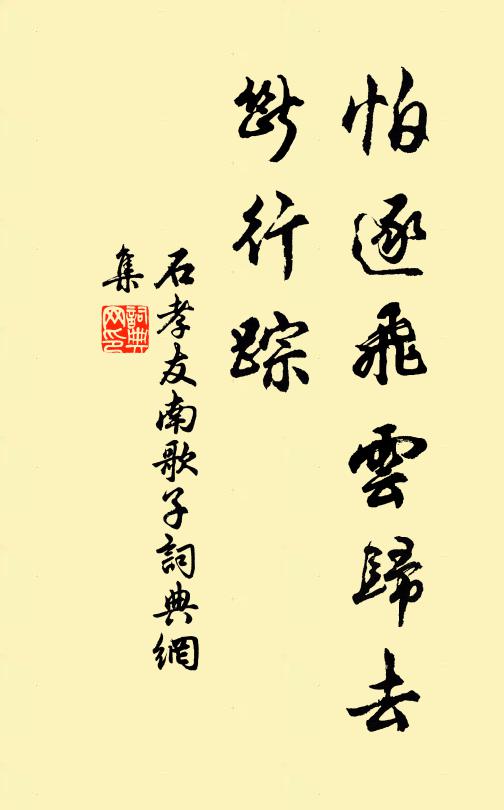 怕逐飛雲歸去
斷行踪
石孝友南歌子詞典網
集
詞典网印